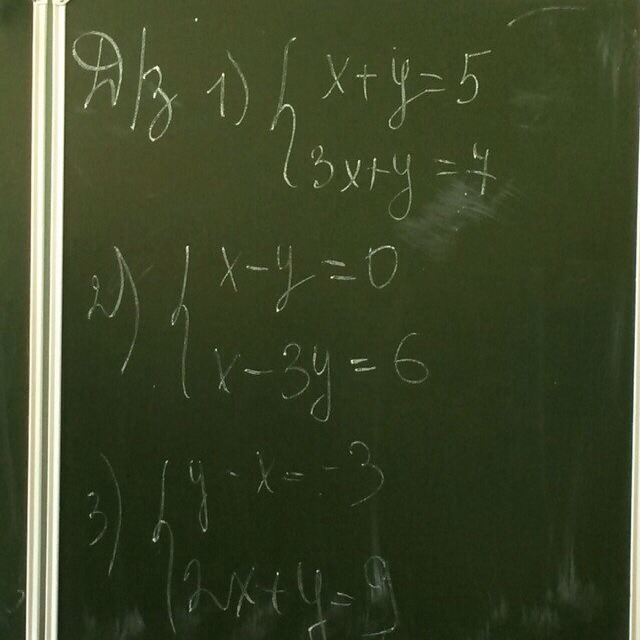 Д/з 1) { x+y=5
3x+y=7
2) { x-y=0
x-3y=6
3) { y-x=-3
2x+y=9